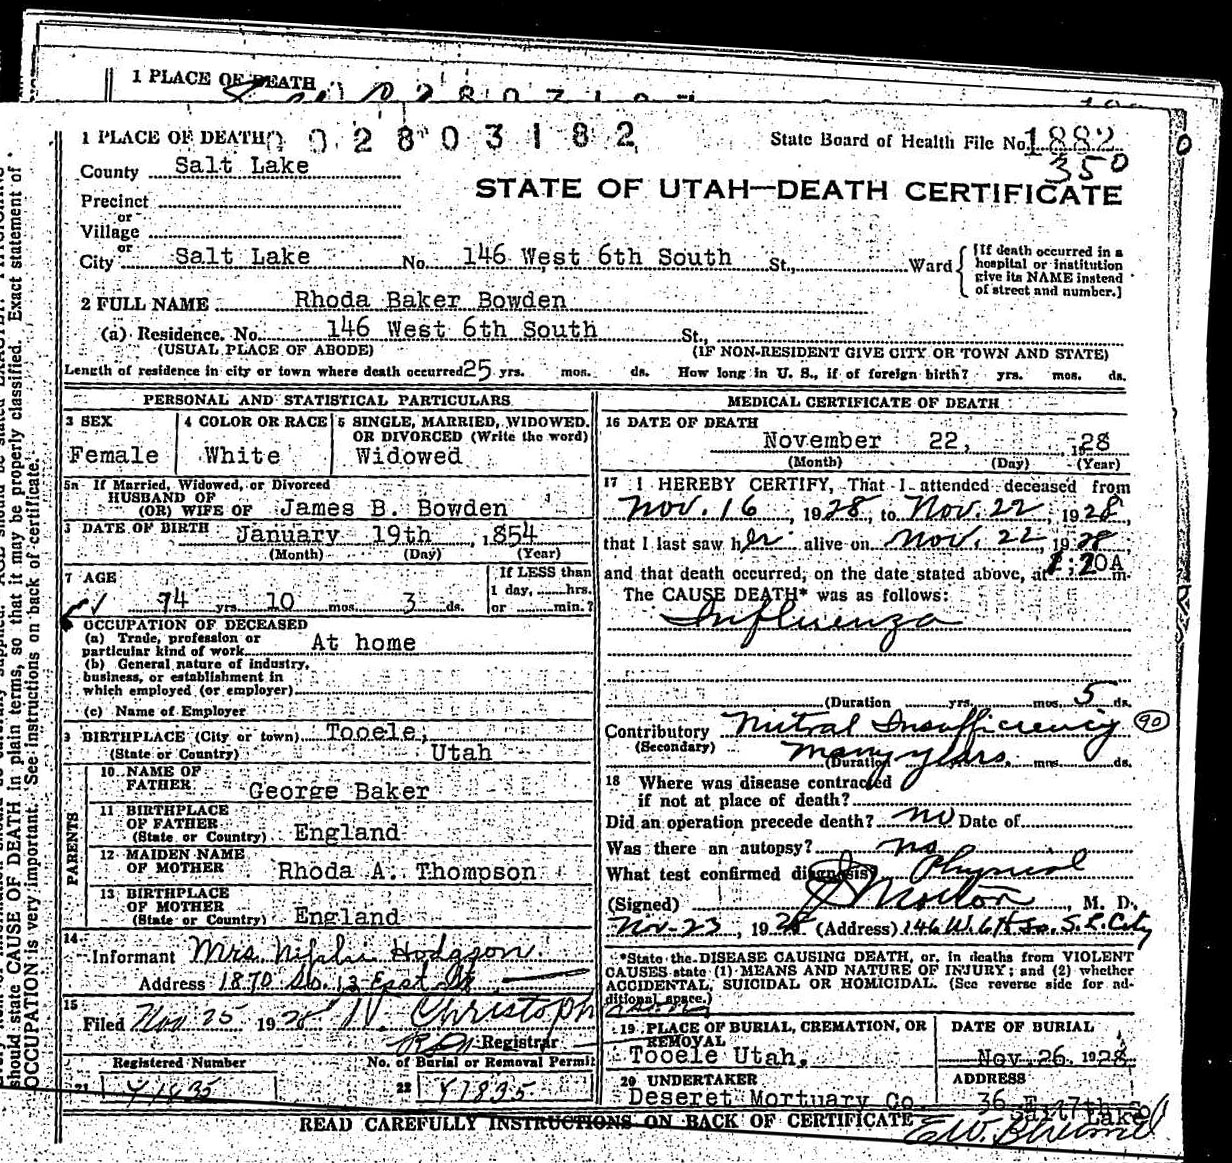 1 PLACE OF DEATH
1 PLACE OF DEATH 0 0 2 8 0 3 1 8 2
State Board of Health File No. 1882
350
County Salt Lake
STATE OF UTAH—DEATH CERTIFICATE
Precinct
or
Village
or
City Salt Lake No. 146 West 6th South St., Ward
[If death occurred in a
hospital or institution
give its NAME instead
of street and number.]
2 FULL NAME Rhoda Baker Bowden
(a) Residence. No. 146 West 6th South St.,
(USUAL PLACE OF ABODE) (IF NON-RESIDENT GIVE CITY OR TOWN AND STATE)
Length of residence in city or town where death occurred 25 yrs. mos. ds. How long in U. S., if of foreign birth? yrs. mos. ds.
PERSONAL AND STATISTICAL PARTICULARS
3 SEX
Female
4 COLOR OR RACE
White
5 SINGLE, MARRIED, WIDOWED.
OR DIVORCED (Write the word)
Widowed
5a If Married, Widowed, or Divorced
HUSBAND OF
(OR) WIFE OF James B. Bowden
DATE OF BIRTH January 19th , 1854
(Month) (Day) (Year)
7 AGE
74 yrs 10 mos. 3 ds.
If LESS than
1 day, hrs.
or min.?
OCCUPATION OF DECEASED
(a) Trade, profession or
particular kind of work At home
(b) General nature of industry,
business, or establishment in
which employed (or employer)
(c) Name of Employer
BIRTHPLACE (City or town) Tooele,
(State or Country) Utah
PARENTS
10 NAME OF
FATHER George Baker
11 BIRTHPLACE
OF FATHER
(State or Country) England
12 MAIDEN NAME
OF MOTHER Rhoda A. Thompson
13 BIRTHPLACE
OF MOTHER
(State or Country) England
14
Informant Mrs. Hodgson
Address 1870 So. 13 East St
15
Filed Nov 25 1928 N. Christoph
Registrar
Registered Number
21
No. of Burial or Removal Permit
22 Y1835
MEDICAL CERTIFICATE OF DEATH
16 DATE OF DEATH
November 22, 1928
(Month) (Day) (Year)
17 I HEREBY CERTIFY, That I attended deceased from
Nov. 16, 1928, to Nov. 22, 1928,
that I last saw her alive on Nov. 22 1928
and that death occurred, on the date stated above, at m.
The CAUSE DEATH* was as follows:
Influenza
(Duration yrs. mos. 5 ds.
Contributory Mitral Insufficiency 90
(Secondary) many years.
(Duration mos. ds.
18 Where was disease contracted
if not at place of death?
Did an operation precede death? no Date of
Was there an autopsy? no
What test confirmed diagnosis? Physical
(Signed) Morton, M. D.
Nov-23, 1928 (Address) 146 W. 6th So. S. L. City
*State the DISEASE CAUSING DEATH, or, in deaths from VIOLENT
CAUSES state (1) MEANS AND NATURE OF INJURY; and (2) whether
ACCIDENTAL, SUICIDAL OR HOMICIDAL. (See reverse side for ad-
ditional space.)
19 PLACE OF BURIAL, CREMATION, OR
REMOVAL
Tooele Utah.
DATE OF BURIAL
Nov. 26, 1928
20 UNDERTAKER
Deseret Mortuary Co
ADDRESS
36 E. 7th So
Salt Lake
READ CAREFULLY INSTRUCTIONS ON BACK OF CERTIFICATE
should state CAUSE OF DEATH in plain terms, so that it may be properly classified. Exact statement of
OCCUPATION is very important. See instructions on back of certificate.